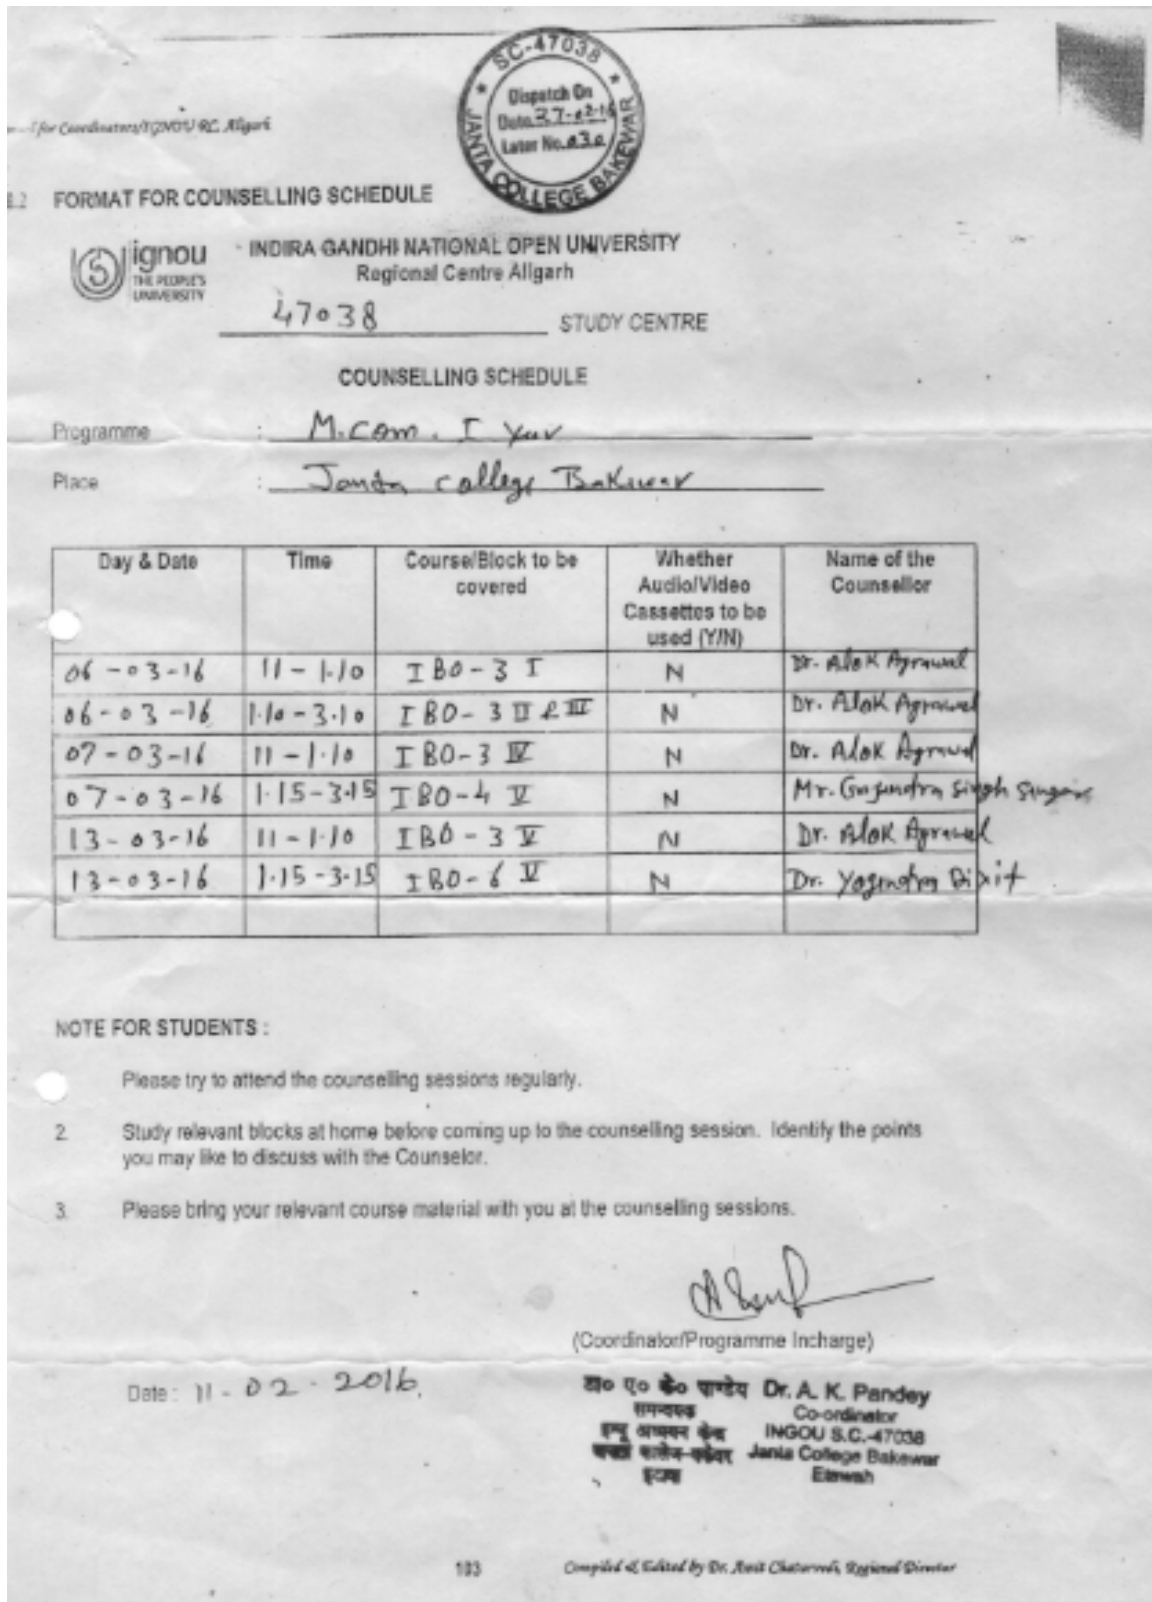 SC-47038
Dispatch On
Date 27-02-16
Later No. 030
JANTA COLLEGE BAKEWAR
for Coordinators/IGNOU RC, Aligarh
.2 FORMAT FOR COUNSELLING SCHEDULE
ignou
THE PEOPLE'S
UNIVERSITY
INDIRA GANDHI NATIONAL OPEN UNIVERSITY
Regional Centre Aligarh
47038 STUDY CENTRE
COUNSELLING SCHEDULE
Programme : M.Com. I Year
Place : Janta college Bakewar
Day & Date Time Course/Block to be covered Whether Audio/Video Cassettes to be used (Y/N) Name of the Counsellor
06-03-16 11-1.10 IBO-3 I N Dr. Alok Agrawal
06-03-16 1.10-3.10 IBO-3 II & III N Dr. Alok Agrawal
07-03-16 11-1.10 IBO-3 IV N Dr. Alok Agrawal
07-03-16 1.15-3.15 IBO-4 V N Mr. Gajendra Singh
13-03-16 11-1.10 IBO-3 V N Dr. Alok Agrawal
13-03-16 1.15-3.15 IBO-6 V N Dr. Yogendra Dixit
NOTE FOR STUDENTS :
Please try to attend the counselling sessions regularly.
2. Study relevant blocks at home before coming up to the counselling session. Identify the points
you may like to discuss with the Counselor.
3. Please bring your relevant course material with you at the counselling sessions.
(Coordinator/Programme Incharge)
Date : 11-02-2016.
डा० ए० के० पाण्डेय Dr. A. K. Pandey
समन्वयक Co-ordinator
इग्नू अध्ययन केन्द्र INGOU S.C.-47038
जनता कालेज बकेवर Janta College Bakewar
इटावा Etawah
103 Compiled & Edited by Dr. Amit Chaturvedi, Regional Director